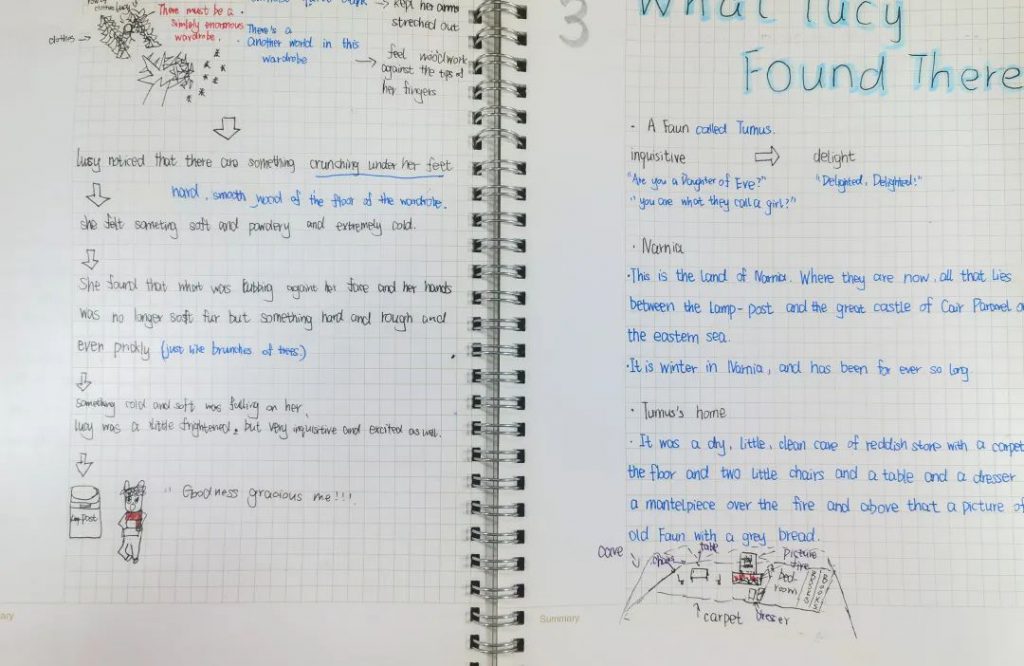 There must be a
simply enormous
wardrobe.
clothes →
There's a
another world in this
wardrobe
→ kept her arms
streched out
→ feel woodwork
against the tips of
her fingers
lucy noticed that there are something crunching under her feet
hard, smooth wood of the floor of the wardrobe.
she felt someting soft and powdery and extremely cold.
She found that what was bubbing againt her face and her hands
was no longer soft fur but something hard and rough and
even prickly (just like brunches of trees.)
something cold and soft was falling on her,
lucy was a little frightened, but very inquisitive and excited as well.
Lamp Post
" Goodness gracious me!!!
ary
3
What lucy
Found There
· A Faun called Tumus.
inquisitive ⇒ delight
"Are you a Daughter of Eve?" "Delighted, Delighted!"
"you are what they call a girl?"
· Narnia
·This is the land of Narnia. Where they are now, all that lies
between the lamp-post and the great castle of Cair Paravel
the eastern sea.
·It is winter in Narnia, and has been for ever so long.
· Tumus's home
· It was a dry, little, clean cave of reddish stone with a carpet
the floor and two little chairs and a table and a dresser
a mantelpiece over the fire and above that a picture of
old Faun with a grey bread.
cave
chairs
table
picture
fire
bed
room
carpet
dresser
Summary